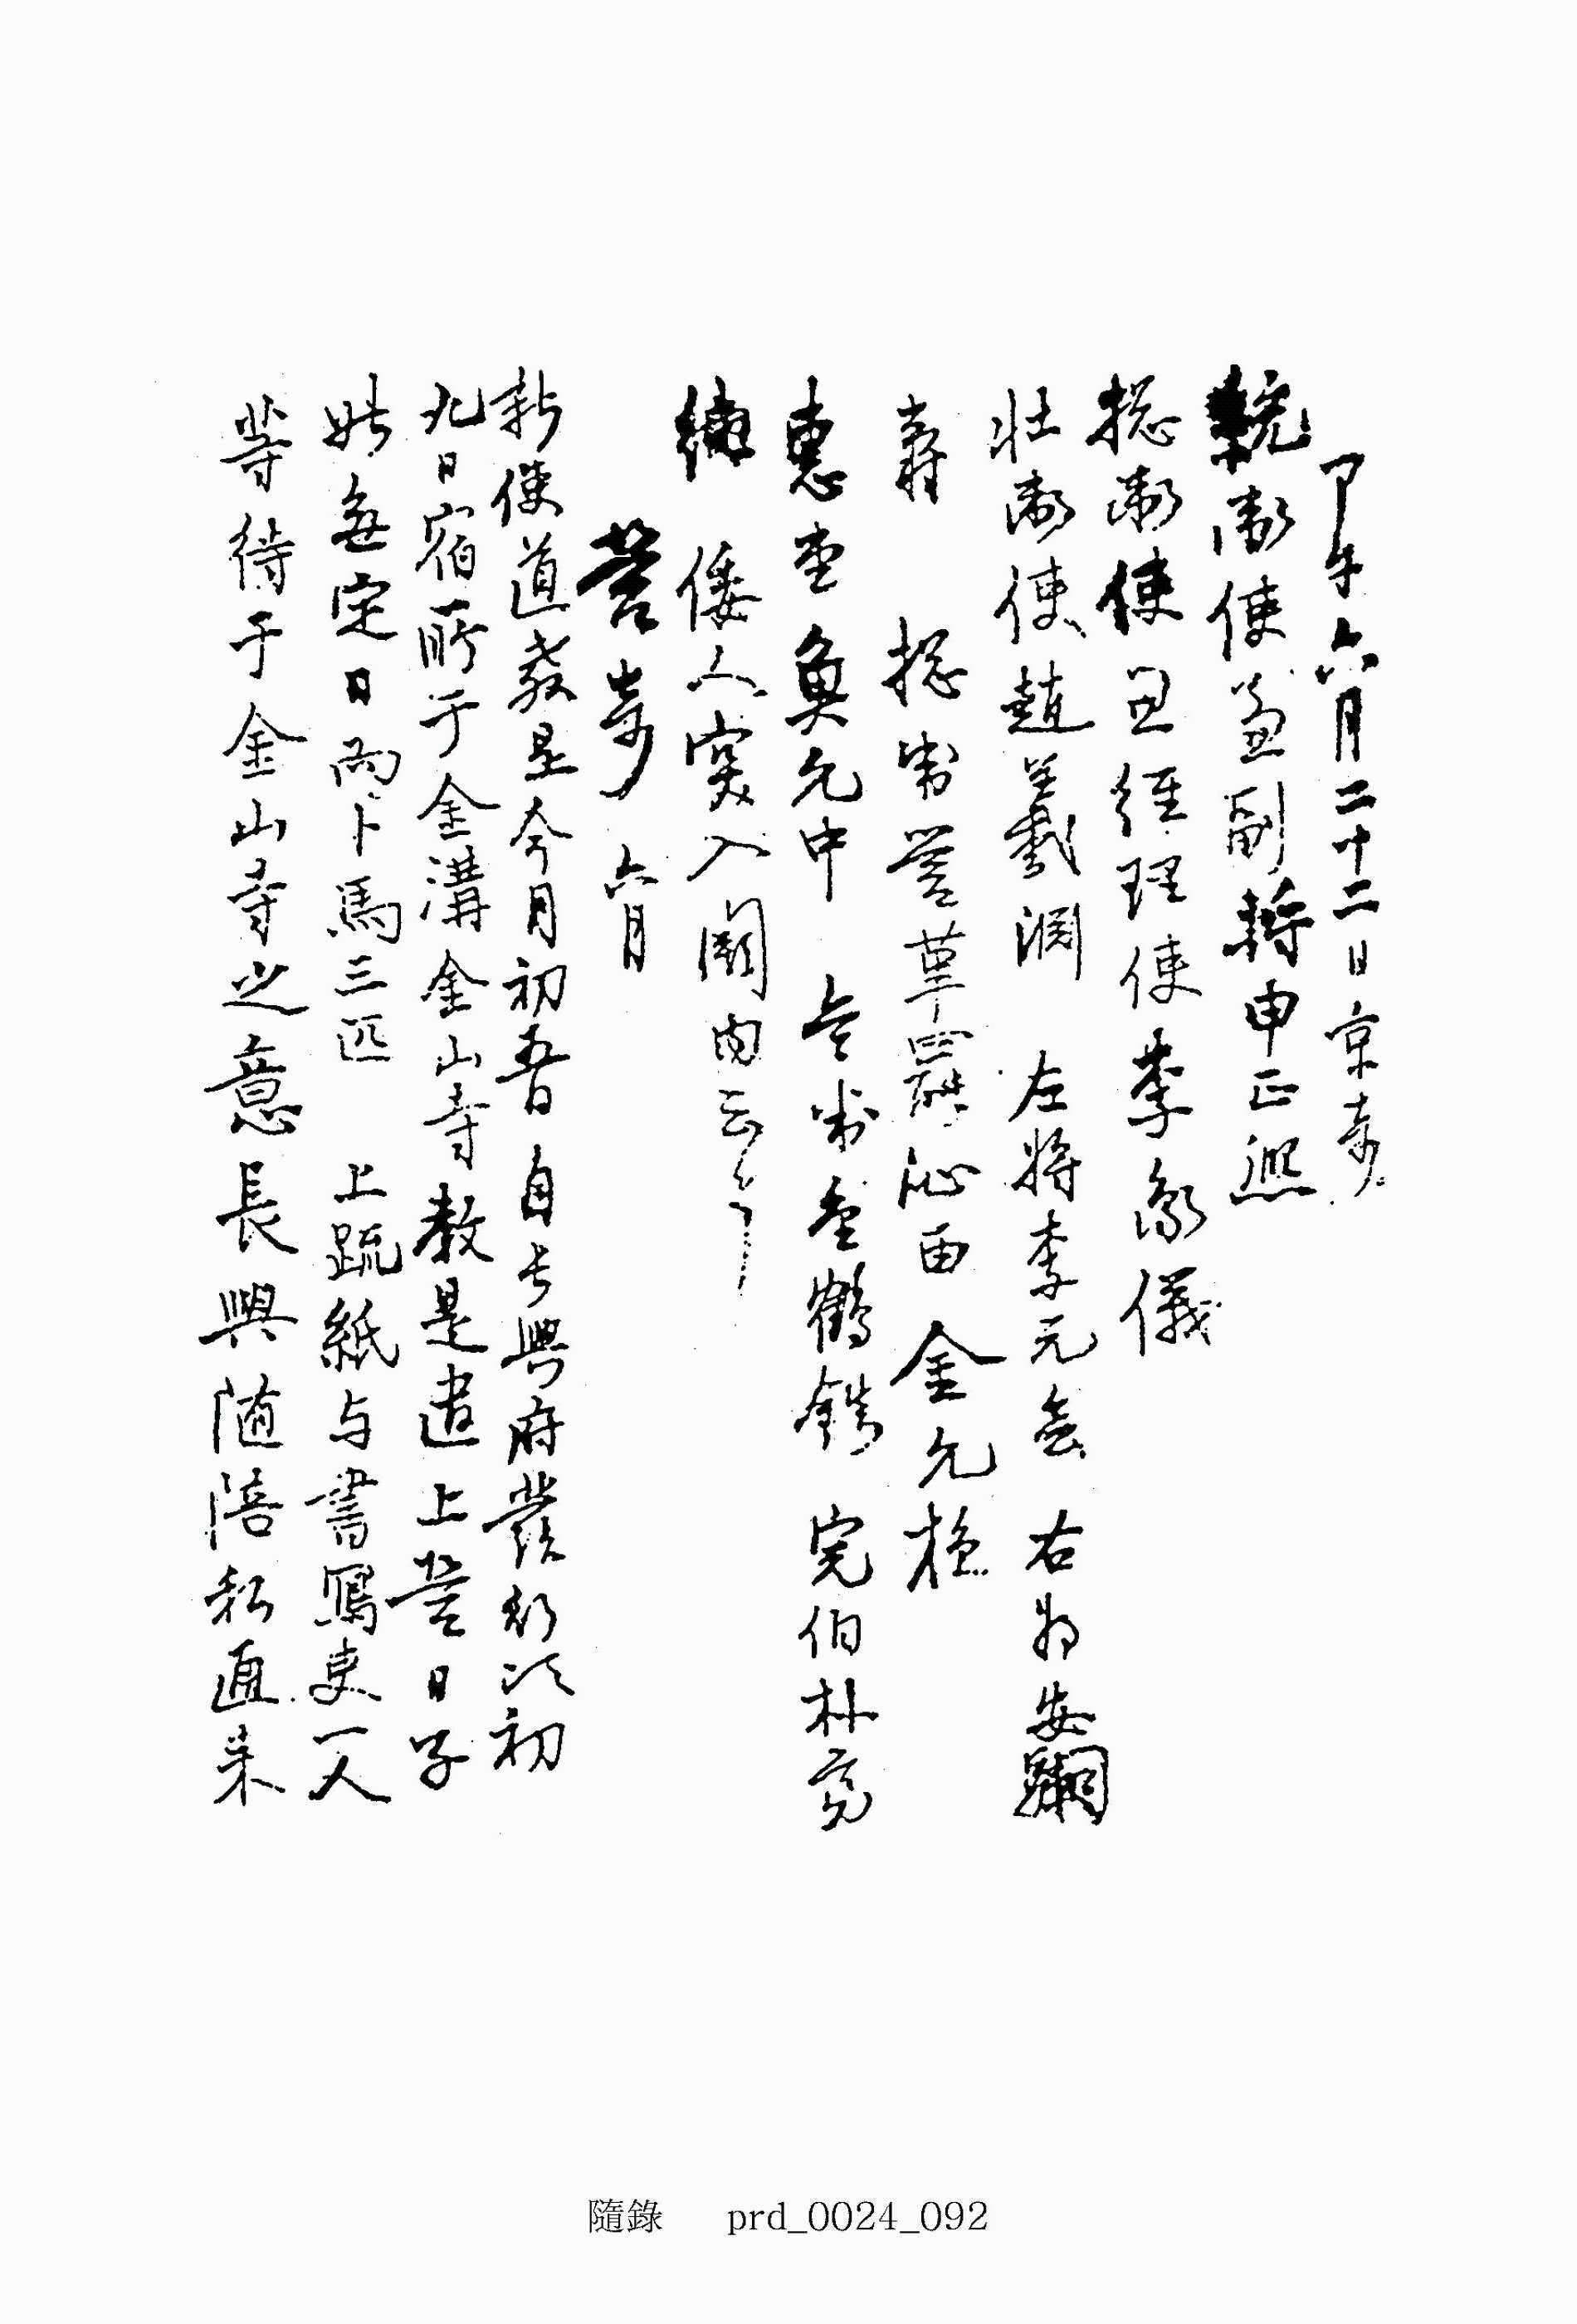 甲午六月二十二日京奇
統衛使兼副將申正熙
摠衛使王經理使李鳳儀
壯衛使趙羲淵 左將李元會 右將安駉壽
摠制營革罷沁留金允植
惠堂魚允中 兵判金鶴鎮 完伯朴
倭人突入闕內云々
營奇 六月
新使道敎是今月初五日自長興府發行次初
九日宿所于金溝金山寺敎是遣上營日子
姑無定日而卜馬三匹 上疏紙与書寫吏一人
等待于金山寺之意長興隨陪私通來